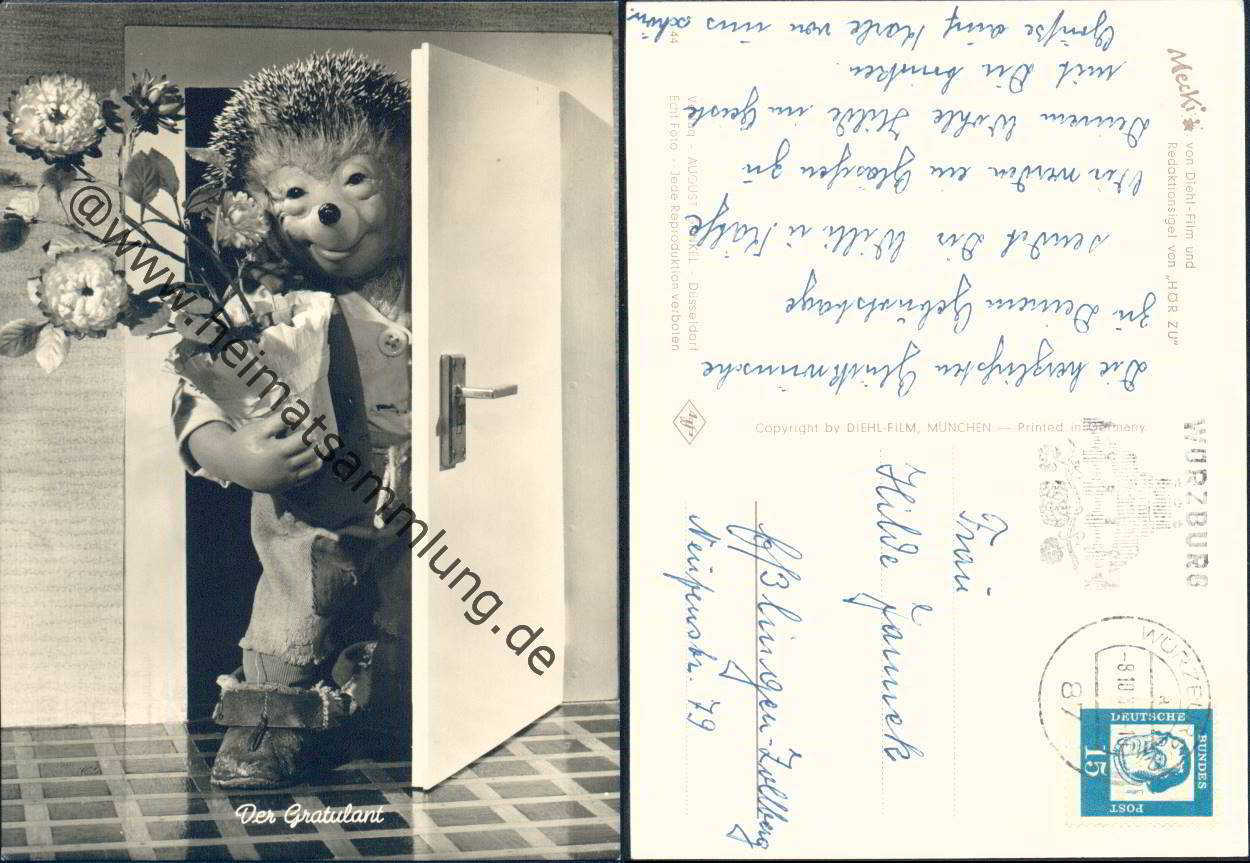 @www.heimatsammlung.de
Der Gratulant
Mecki
von Diehl-Film und
Redaktionsigel von „HÖR ZU"
Die herzlichsten Glückwünsche
zu Deinem Geburtstage
sendet Dir Willi u Käthe
Wir werden ein Gläschen zu
Deinem Wohle Hilde im Geiste
mit Dir trinken
Grüße auch Karle von uns schön.
44
Verlag - AUGUST - Düsseldorf
Echt Foto - Jede Reproduktion verboten
Copyright by DIEHL-FILM, MÜNCHEN — Printed in Germany
WÜRZBURG
WÜRZBURG
-8.10
87
DEUTSCHE
BUNDES
POST
15
Luther
Frau
Hilde Janneck
Eßlingen-Zollberg
Neuffenstr. 79